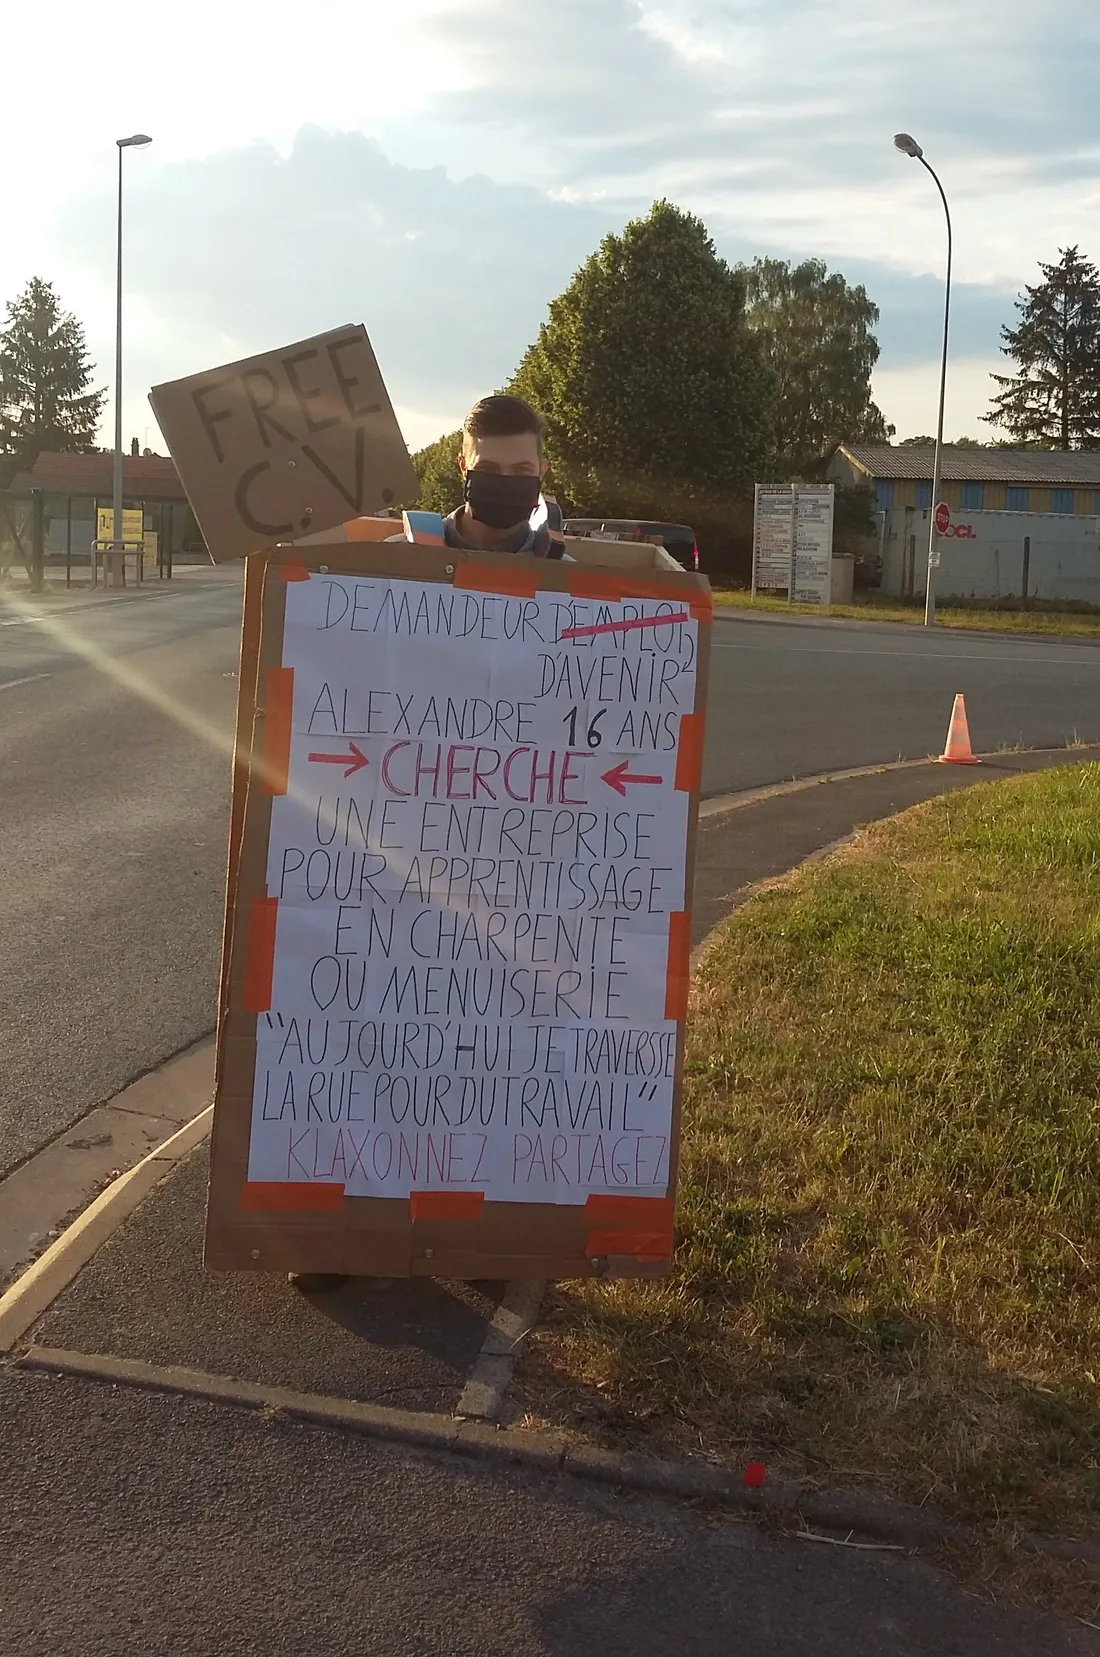 FREE
C.V.
DEMANDEUR D'EMPLOI,
D'AVENIR
ALEXANDRE 16 ANS
→ CHERCHE ←
UNE ENTREPRISE
POUR APPRENTISSAGE
EN CHARPENTE
OU MENUISERIE
"AUJOURD'HUI JE TRAVERSSE
LA RUE POUR DU TRAVAIL"
KLAXONNEZ PARTAGEZ
STOP
OCL